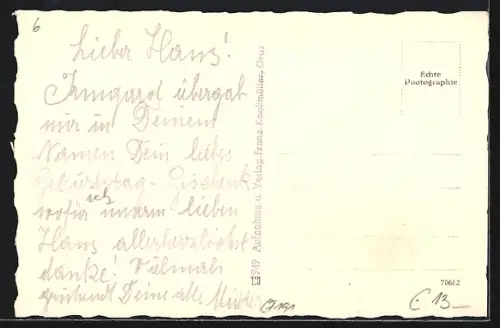 6
Lieber Hans!
Irmgard übergab
mir in Deinem
Namen Dein liebes
Geburtstag-Geschenk
wofür ich unserm lieben
Hans allerherzlichst
danke! Vielmals
grüßend Deine alte Mutter
1949 Aufnahme u. Verlag Franz Knollmüller, Graz
Echte
Photographie
70612
€ 13.-